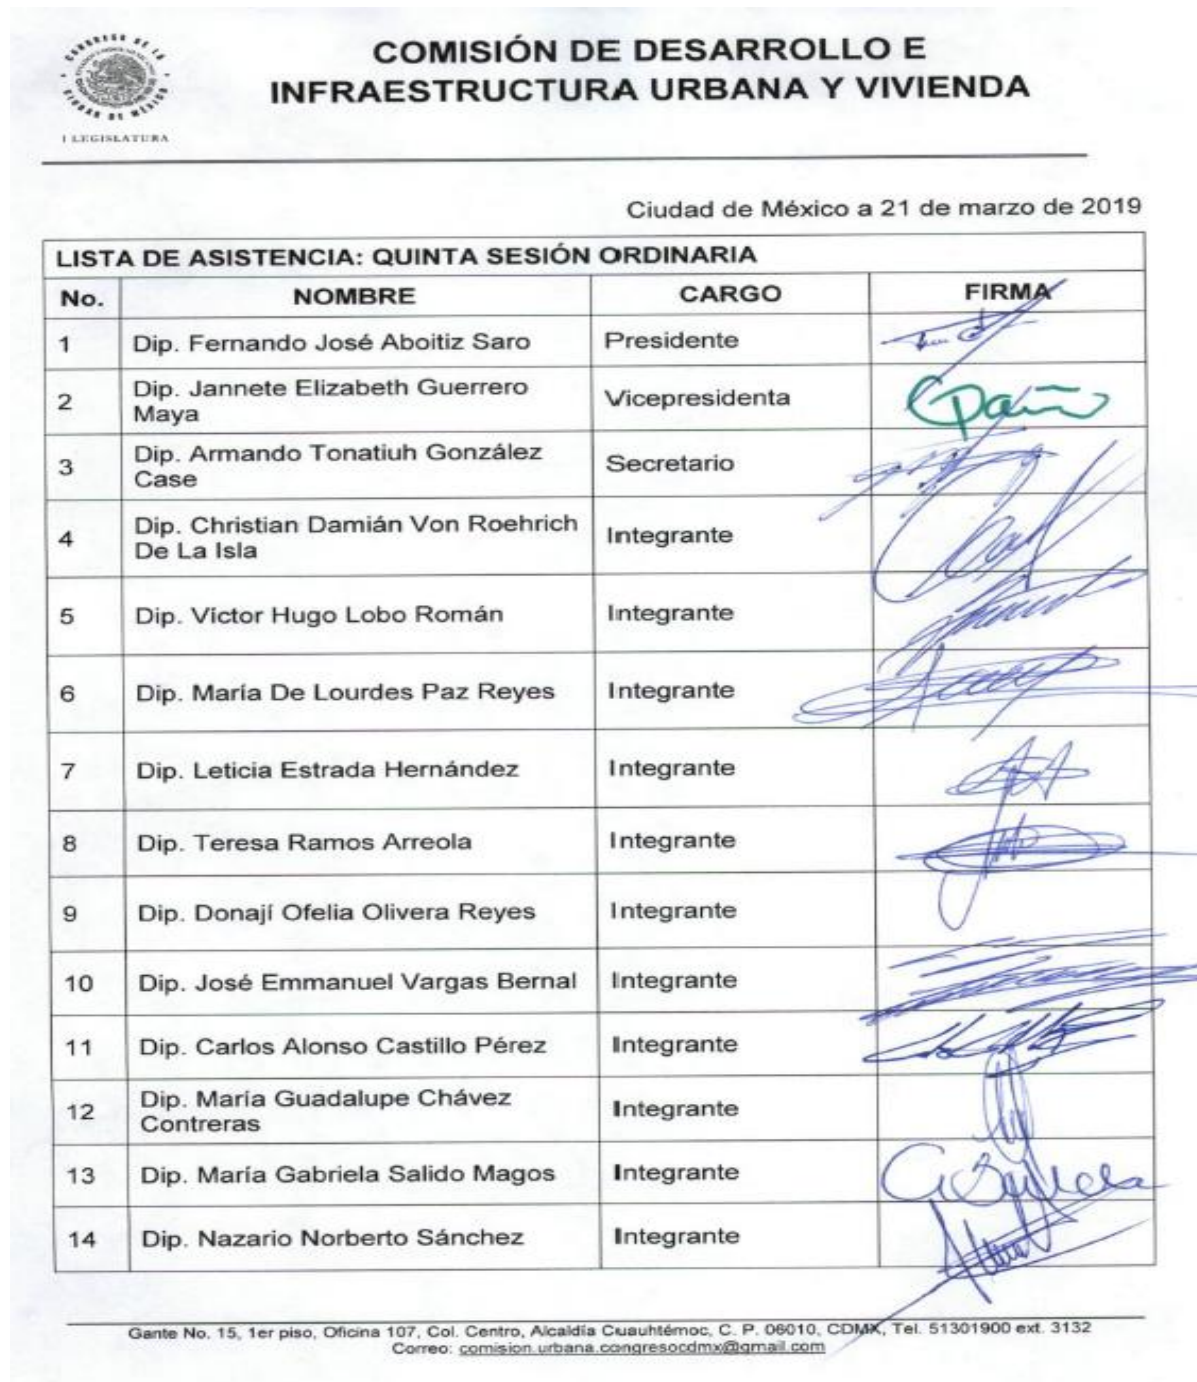 CONGRESO DE LA CIUDAD DE MÉXICO
I LEGISLATURA
COMISIÓN DE DESARROLLO E
INFRAESTRUCTURA URBANA Y VIVIENDA
Ciudad de México a 21 de marzo de 2019
LISTA DE ASISTENCIA: QUINTA SESIÓN ORDINARIA
No. NOMBRE CARGO FIRMA
1 Dip. Fernando José Aboitiz Saro Presidente
2 Dip. Jannete Elizabeth Guerrero
Maya Vicepresidenta
3 Dip. Armando Tonatiuh González
Case Secretario
4 Dip. Christian Damián Von Roehrich
De La Isla Integrante
5 Dip. Víctor Hugo Lobo Román Integrante
6 Dip. María De Lourdes Paz Reyes Integrante
7 Dip. Leticia Estrada Hernández Integrante
8 Dip. Teresa Ramos Arreola Integrante
9 Dip. Donají Ofelia Olivera Reyes Integrante
10 Dip. José Emmanuel Vargas Bernal Integrante
11 Dip. Carlos Alonso Castillo Pérez Integrante
12 Dip. María Guadalupe Chávez
Contreras Integrante
13 Dip. María Gabriela Salido Magos Integrante
14 Dip. Nazario Norberto Sánchez Integrante
Gante No. 15, 1er piso, Oficina 107, Col. Centro, Alcaldía Cuauhtémoc, C. P. 06010, CDMX, Tel. 51301900 ext. 3132
Correo: comision.urbana.congresocdmx@gmail.com